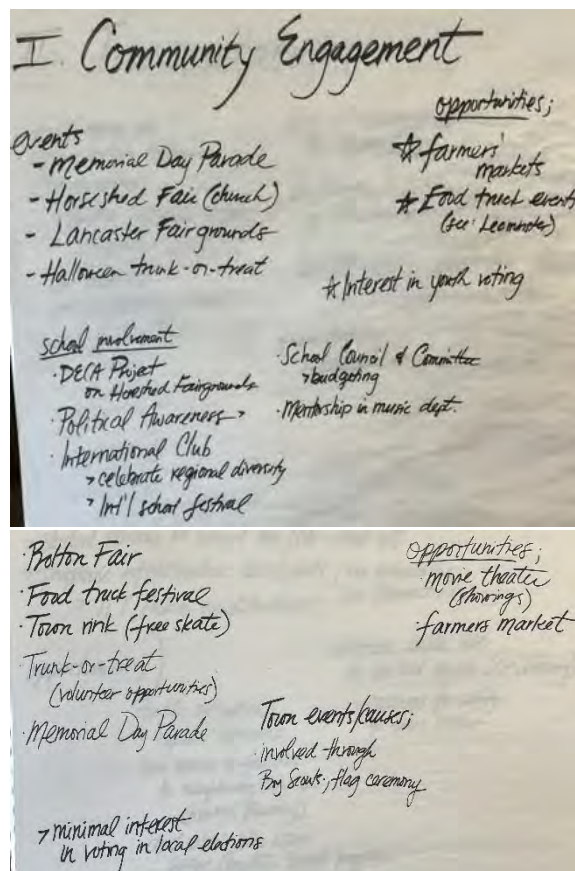 I. Community Engagement
events
- Memorial Day Parade
- Horseshed Fair (church)
- Lancaster Fairgrounds
- Halloween trunk-or-treat
opportunities;
☆ farmers'
markets
☆ Food truck events
(see: Leominster)
☆ Interest in youth voting
school involvement
· DECA Project
on Horeshed Fairgrounds
· Political Awareness >
· International Club
> celebrate regional diversity
> Int'l school festival
· School Council & Committee
> budgeting
· Mentorship in music dept.
· Bolton Fair
· Food truck festival
· Town rink (free skate)
· Trunk-or-treat
(volunteer opportunities)
· Memorial Day Parade
opportunities;
· movie theater
(showings)
· farmers market
Town events/causes;
· involved through
Boy Scouts; flag ceremony
> minimal interest
in voting in local elections